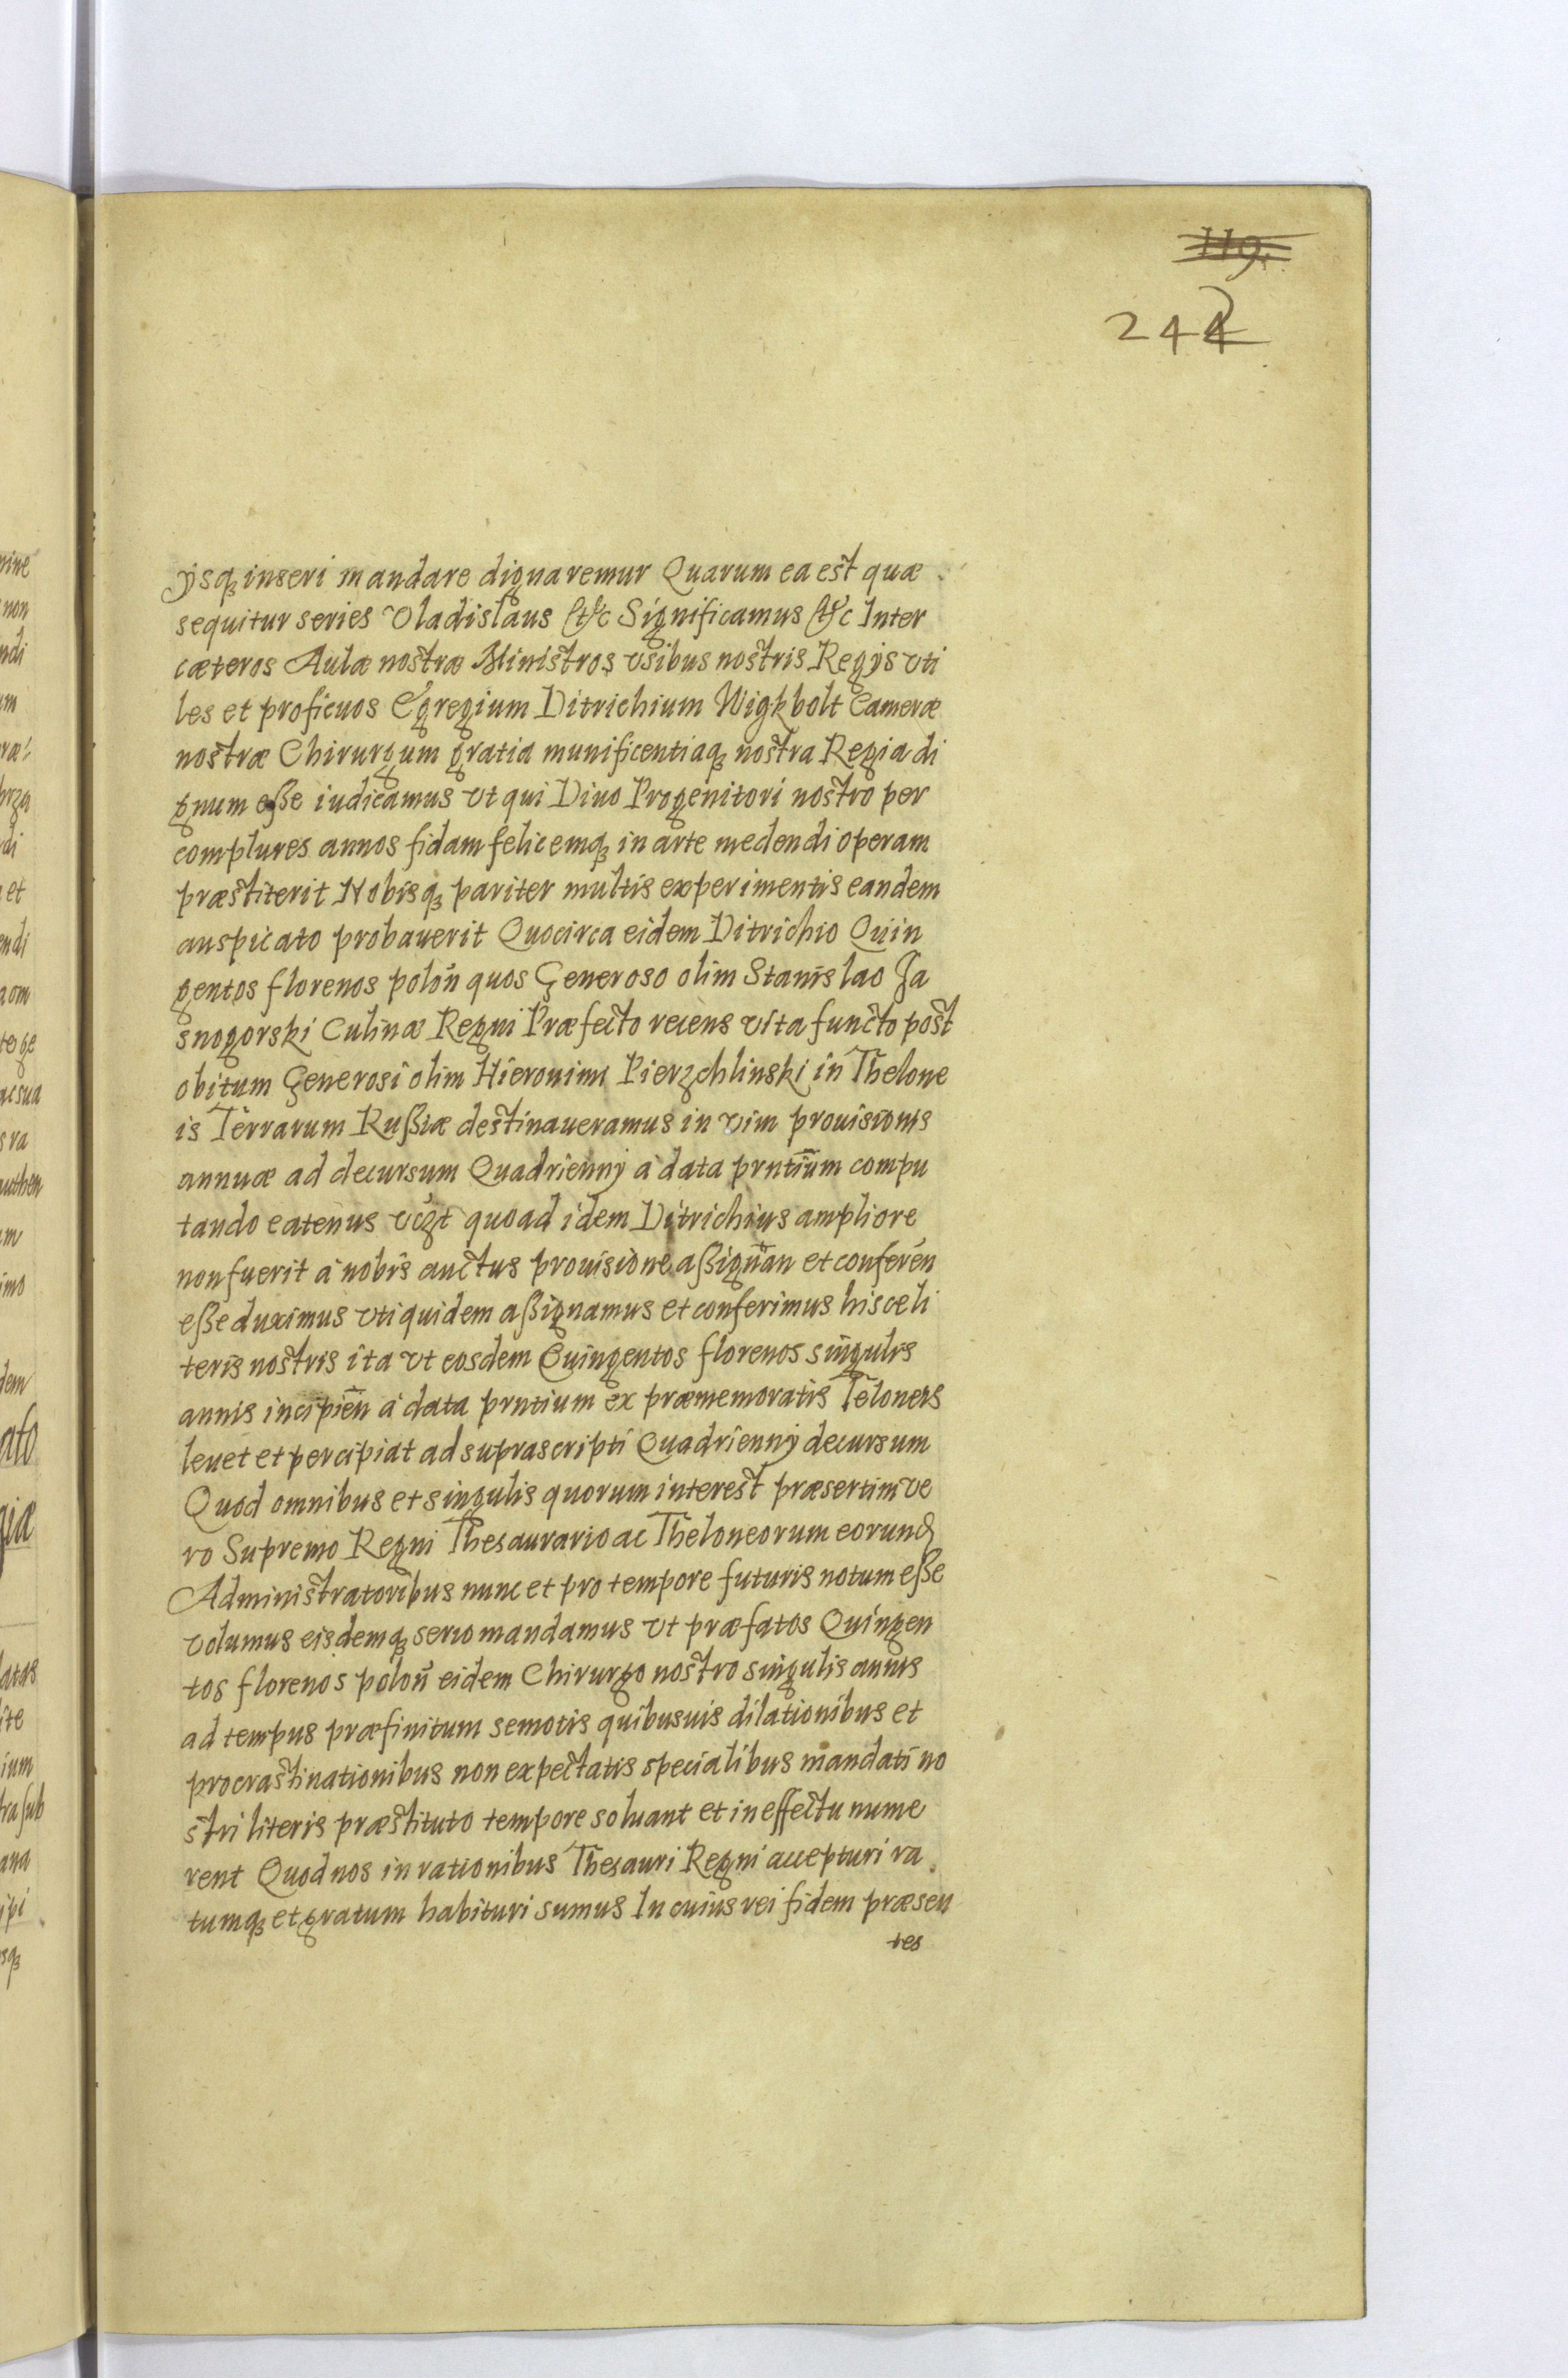 119.
242
ijsq₃ inseri mandare dignaremur Quarum ea est quæ
sequitur series Vladislaus &c Significamus &c Inter
cæteros Aulæ nostræ Ministros vsibus nostris Regijs vti
les et proficuos Egregium Ditrichium Wigkbolt Cameræ
nostræ Chirurgum gratia munificentiaq₃ nostra Regia di
gnum eße iudicamus vt qui Diuo Progenitori nostro per
complures annos fidam felicemq₃ in arte medendi operam
præstiterit Nobisq₃ pariter multis experimentis eandem
auspicato probauerit Quocirca eidem Ditrichio Quin
gentos florenos poloñ quos Generoso olim Stanislao Ja
snogorski Culinæ Regni Præfecto recens vita functo post
obitum Generosi olim Hieronimi Pierzchlinski in Thelone
is Terrarum Rußiæ destinaueramus in vim prouisionis
annuæ ad decursum Quadriennij a data prntium compu
tando eatenus vczt quoad idem Ditrichius ampliore
non fuerit a nobis auctus prouisione aßignañ et confereñ
eße duximus vti quidem aßignamus et conferimus hisce li
teris nostris ita vt eosdem Quingentos florenos singulis
annis incipieñ a data prntium ex præmemoratis Teloneis
leuet et percipiat ad suprascripti Quadriennij decursum
Quod omnibus et singulis quorum interest præsertim ve
ro Supremo Regni Thesaurario ac Theloneorum eorund
Administratoribus nunc et pro tempore futuris notum eße
volumus eisdemq₃ serio mandamus vt præfatos Quingen
tos florenos poloñ eidem Chirurgo nostro singulis annis
ad tempus præfinitum semotis quibusuis dilationibus et
procrastinationibus non expectatis specialibus mandati no
stri literis præstituto tempore soluant et in effectu nume
rent Quod nos in rationibus Thesauri Regni accepturi ra
tumq₃ et gratum habituri sumus In cuius rei fidem præsen
tes